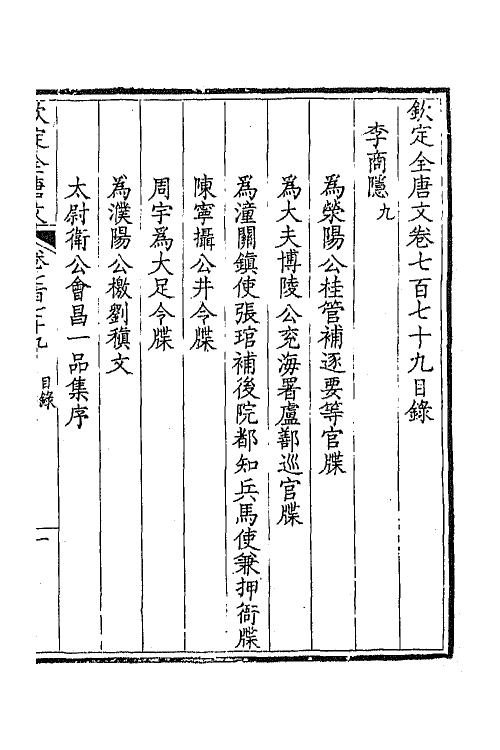 欽定全唐文卷七百七十九目錄
李商隱九
為滎陽公桂管補逐要等官牒
為大夫博陵公兖海署盧鄯巡官牒
為潼關鎮使張琯補後院都知兵馬使兼押衙牒
陳寧攝公井令牒
周宇為大足令牒
為濮陽公檄劉稹文
太尉衛公會昌一品集序
欽定全唐文 卷七百七十九 目錄 一